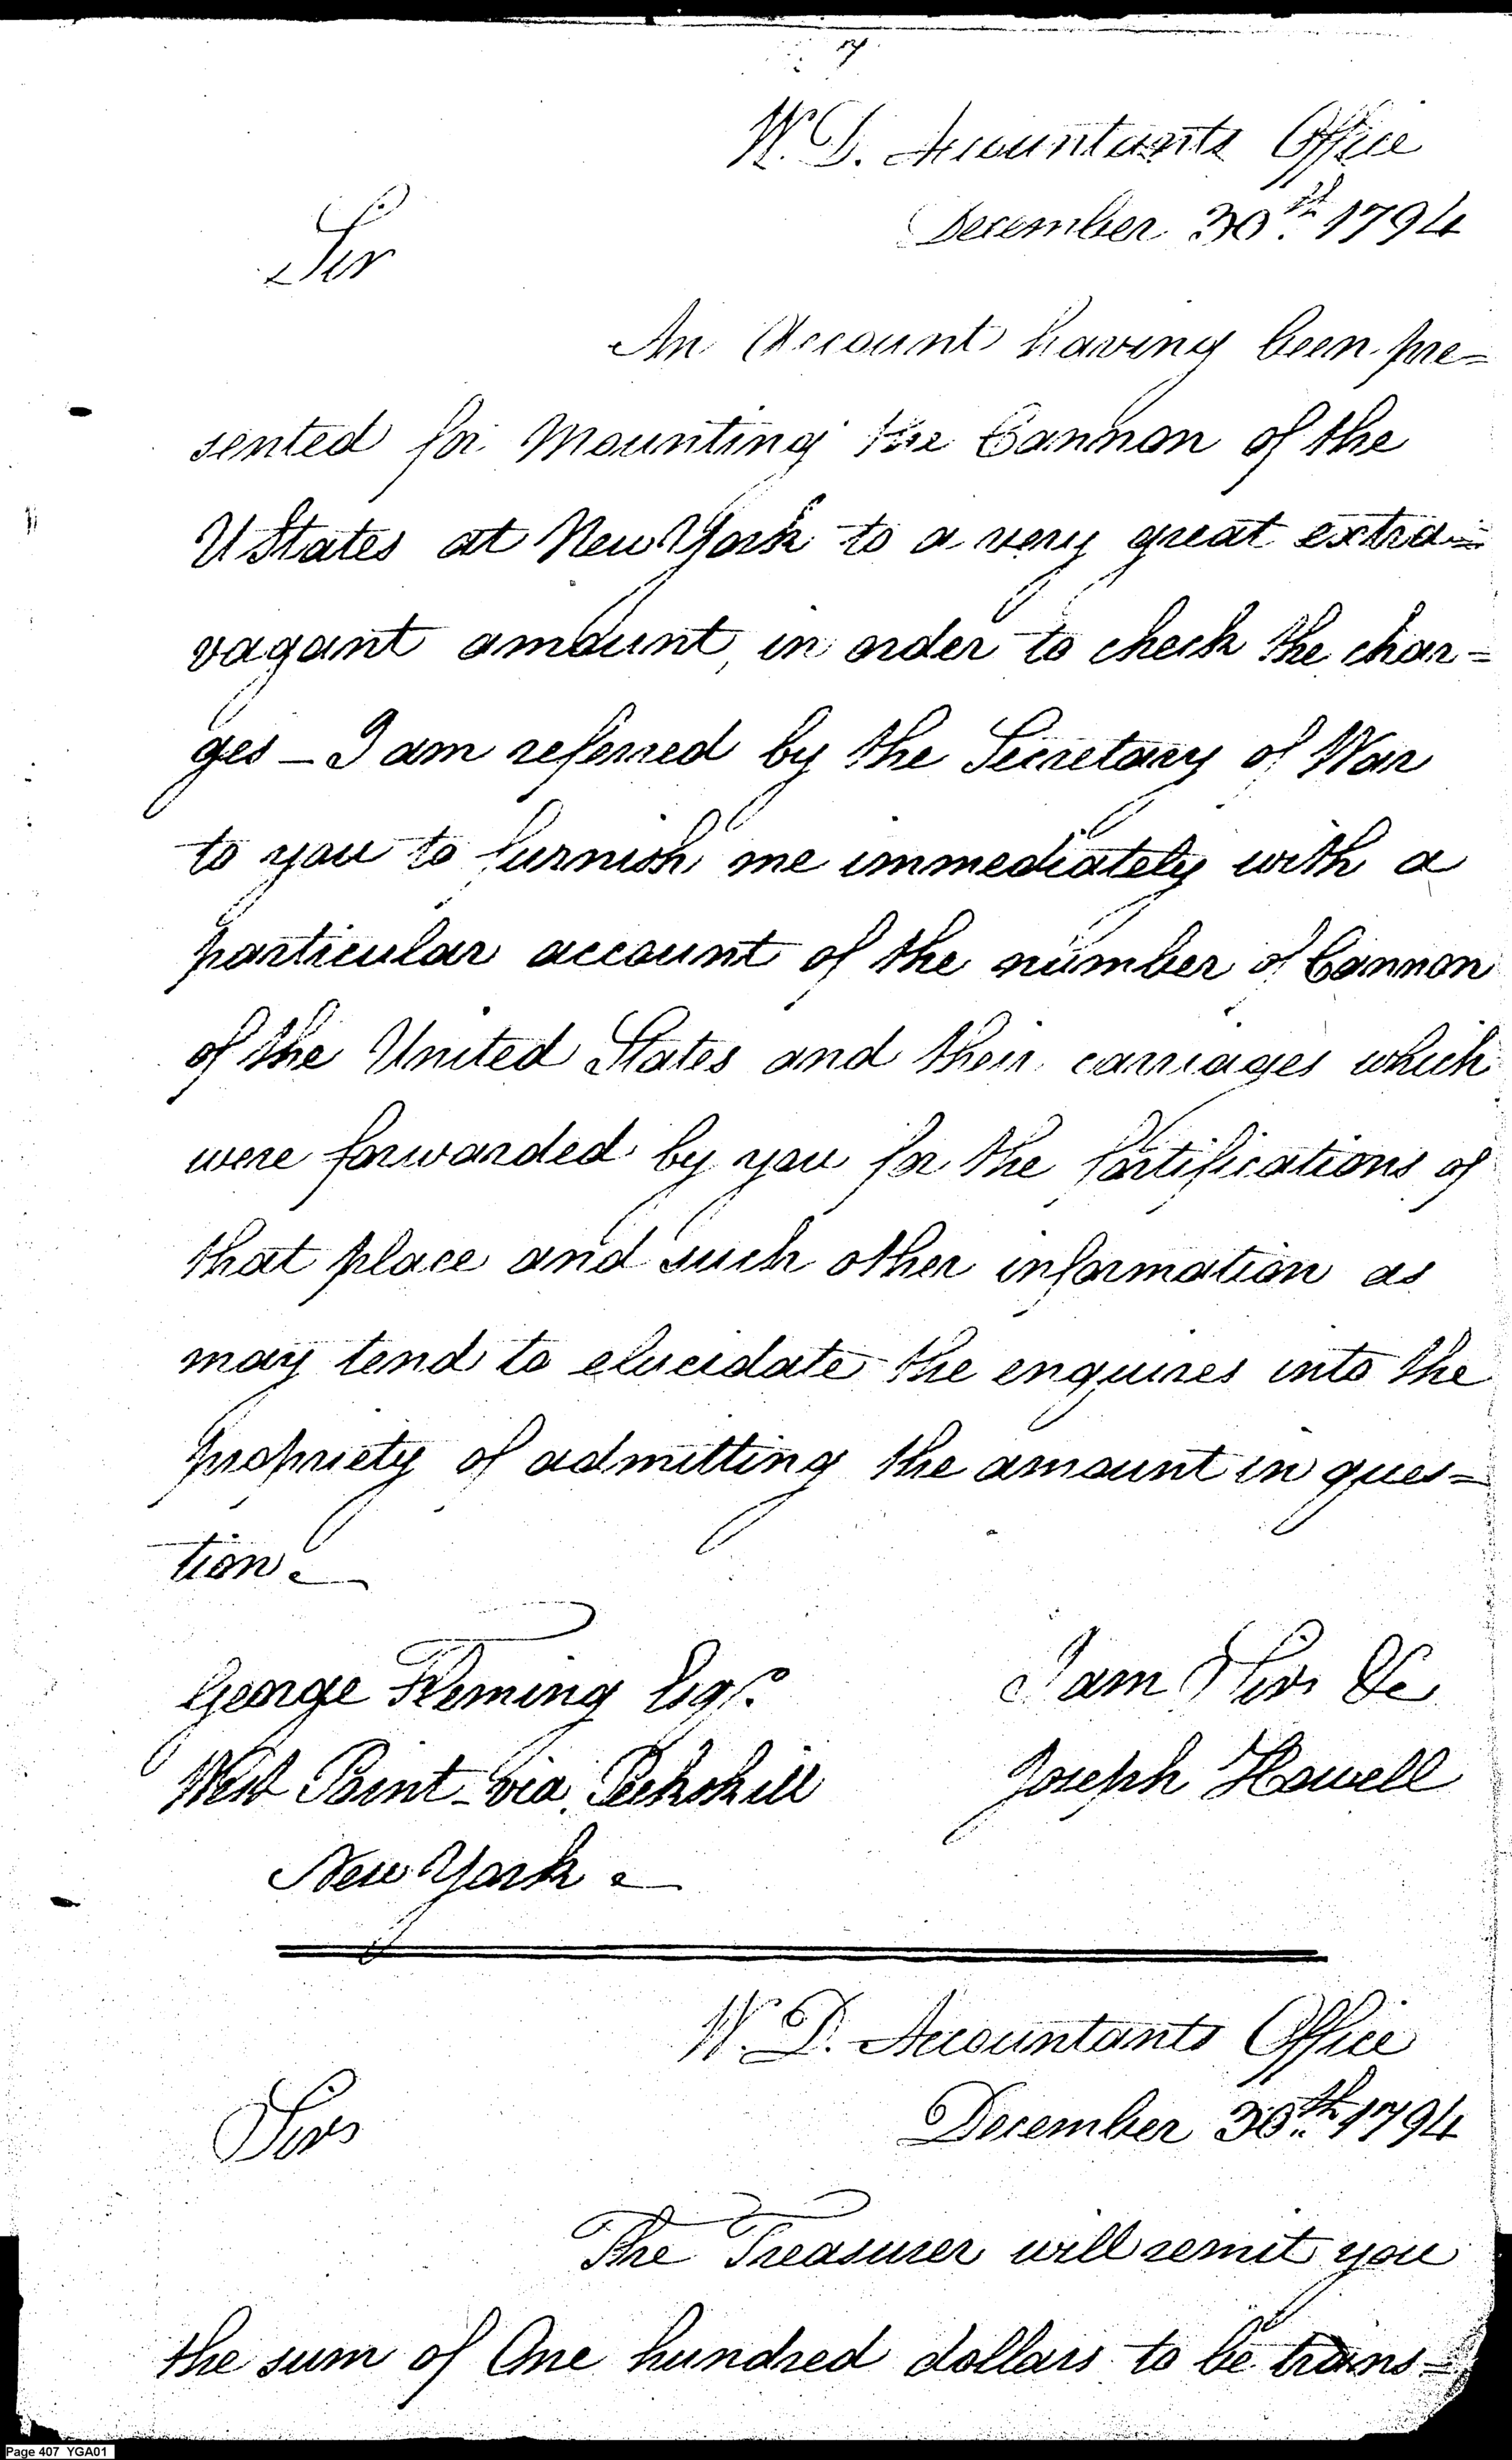 W. D. Accountants Office
December 30th. 1794
Sir
An Account having been pre=
sented for Mounting the Cannon of the
U States at New York to a very great extra=
vagant amount, in order to check the char=
ges – I am referred by the Secretary of War
to you to furnish me immediately with a
particular account of the number of Cannon
of the United States and their carriages which
were forwarded by you for the fortifications of
that place and such other information as
may tend to elucidate the enquires into the
propriety of admitting the amount in ques=
tion.
George Fleming Esqr.
I am Sir &c
West Point – via Peekskill
Joseph Howell
New York.
W. D. Accountants Office
December 30th. 1794
Sir
The Treasurer will remit you
the sum of One hundred dollars to be trans=
Page 407 YGA01